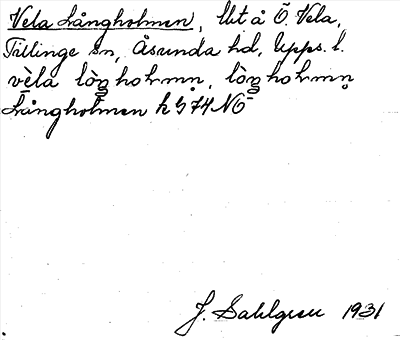 Vela Långholmen, lbt å Ö. Vela,
Tillinge sn, Åsunda hd, Upps. l.
vèla lòŋholmn, lòŋholmn
Långholmen k G 74 NÖ
J. Sahlgren 1931